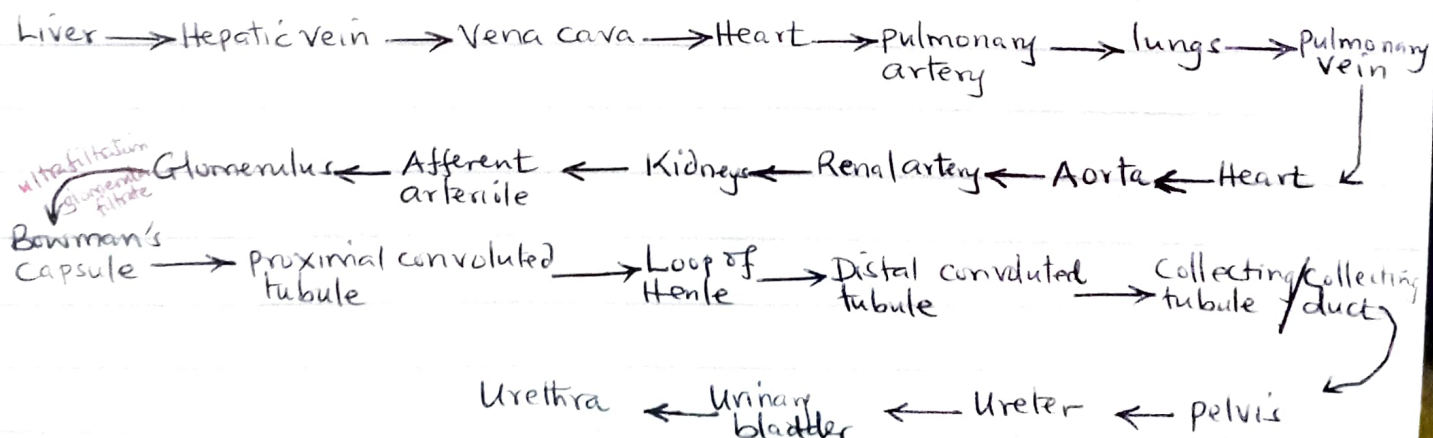 Liver → Hepatic vein → Vena cava → Heart → pulmonary artery → lungs → Pulmonary vein
Glomerulus ← Afferent arteriole ← Kidneys ← Renal artery ← Aorta ← Heart
ultrafiltration
glomerular filtrate
Bowman's capsule → proximal convoluted tubule → Loop of Henle → Distal convoluted tubule → Collecting tubule / Collecting duct
Urethra ← Urinary bladder ← Ureter ← pelvis